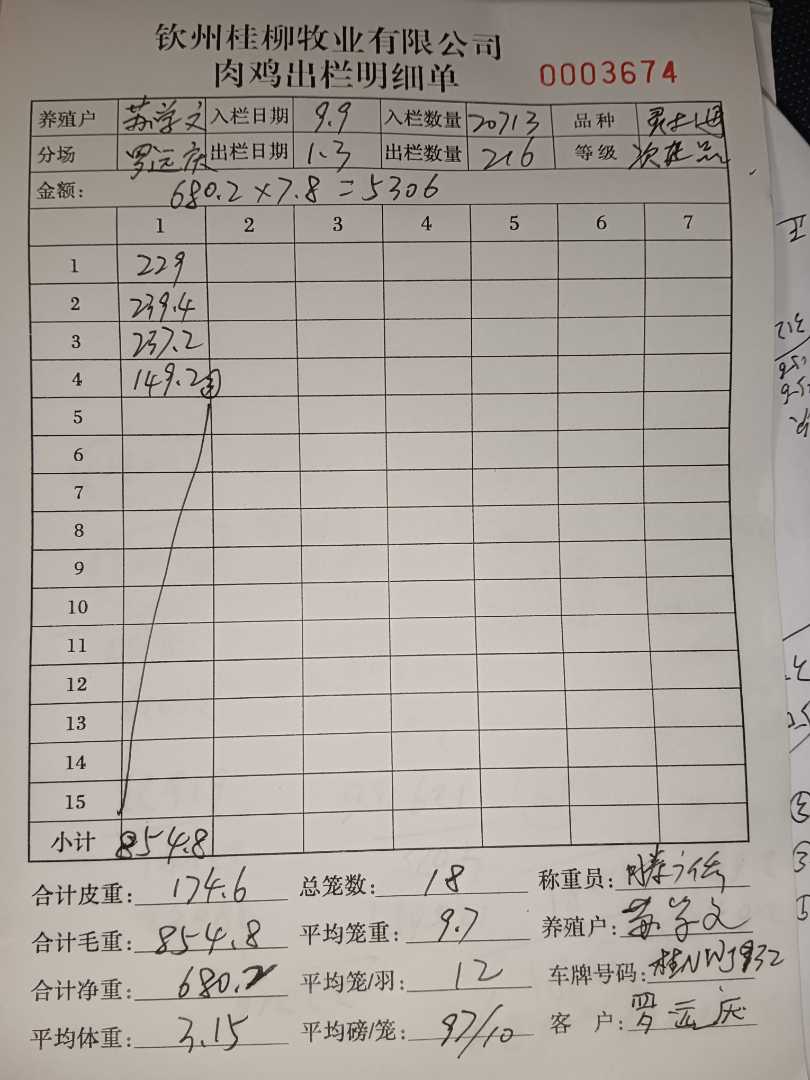 钦州桂柳牧业有限公司
肉鸡出栏明细单 0003674
养殖户 苏学文 入栏日期 9.9 入栏数量 20713 品种
分场 罗运庆 出栏日期 1.3 出栏数量 216 等级 次品
金额: 680.2×7.8=5306
1 2 3 4 5 6 7
1 229
2 239.4
3 237.2
4 149.2
5
6
7
8
9
10
11
12
13
14
15
小计 854.8
合计皮重: 174.6 总笼数: 18 称重员:
合计毛重: 854.8 平均笼重: 9.7 养殖户: 苏学文
合计净重: 680.2 平均笼/羽: 12 车牌号码: 桂NWJ932
平均体重: 3.15 平均磅/笼: 97/10 客 户: 罗运庆